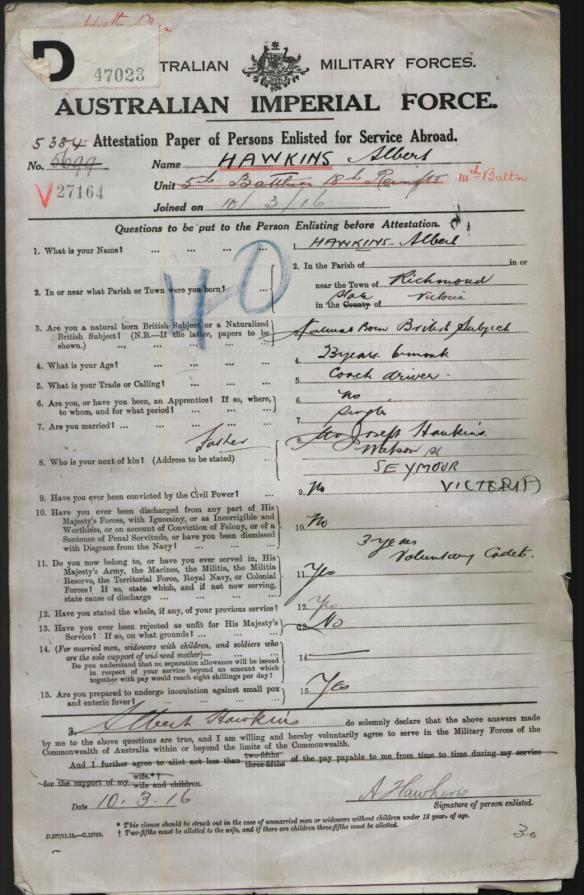 D
47023
TRALIAN MILITARY FORCES.
AUSTRALIAN IMPERIAL FORCE.
5384 Attestation Paper of Persons Enlisted for Service Abroad.
No. 5699 Name HAWKINS Albert
V 27164
Unit 5th Battlion 18th Reinfts Battn
Joined on 10/3/16
Questions to be put to the Person Enlisting before Attestation.
40
1. What is your Name? ... ... ... ... 1. HAWKINS Albert
2. In or near what Parish or Town were you born? 2. In the Parish of in or
near the Town of Richmond
in the County of State Victoria
3. Are you a natural born British Subject or a Naturalized
British Subject? (N.B.—If the latter, papers to be
shown.) ... ... Natural Born British Subject
4. What is your Age? ... ... ... ... 4. 23 years 6 month
5. What is your Trade or Calling? ... ... ... 5. Coach driver.
6. Are you, or have you been, an Apprentice? If so, where,
to whom, and for what period? ... ... ... 6. No
7. Are you married? ... ... ... ... 7. Single
Father
8. Who is your next of kin? (Address to be stated) 8. Mr Joseph Hawkins
Watson St
SEYMOUR
VICTORIA
9. Have you ever been convicted by the Civil Power? ... 9. No
10. Have you ever been discharged from any part of His
Majesty's Forces, with Ignominy, or as Incorrigible and
Worthless, or on account of Conviction of Felony, or of a
Sentence of Penal Servitude, or have you been dismissed
with Disgrace from the Navy? ... ... 10. No
3 years
Voluntary Cadet.
11. Do you now belong to, or have you ever served in, His
Majesty's Army, the Marines, the Militia, the Militia
Reserve, the Territorial Force, Royal Navy, or Colonial
Forces? If so, state which, and if not now serving,
state cause of discharge ... ... ... 11. Yes
12. Have you stated the whole, if any, of your previous service? 12. Yes
13. Have you ever been rejected as unfit for His Majesty's
Service? If so, on what grounds? ... ... 13. No
14. (For married men, widowers with children, and soldiers who
are the sole support of widowed mother)—
Do you understand that no separation allowance will be issued
in respect of your service beyond an amount which
together with pay would reach eight shillings per day? 14.
15. Are you prepared to undergo inoculation against small pox
and enteric fever? ... ... ... 15. Yes
I, Albert Hawkins do solemnly declare that the above answers made
by me to the above questions are true, and I am willing and hereby voluntarily agree to serve in the Military Forces of the
Commonwealth of Australia within or beyond the limits of the Commonwealth.
And I further agree to allot not less than two-fifths three-fifths of the pay payable to me from time to time during my service
for the support of my wife.*† wife and children.
Date 10.3.16 A Hawkins
Signature of person enlisted.
* This clause should be struck out in the case of unmarried men or widowers without children under 18 year. of age.
† Two-fifths must be allotted to the wife, and if there are children three-fifths must be allotted.
30